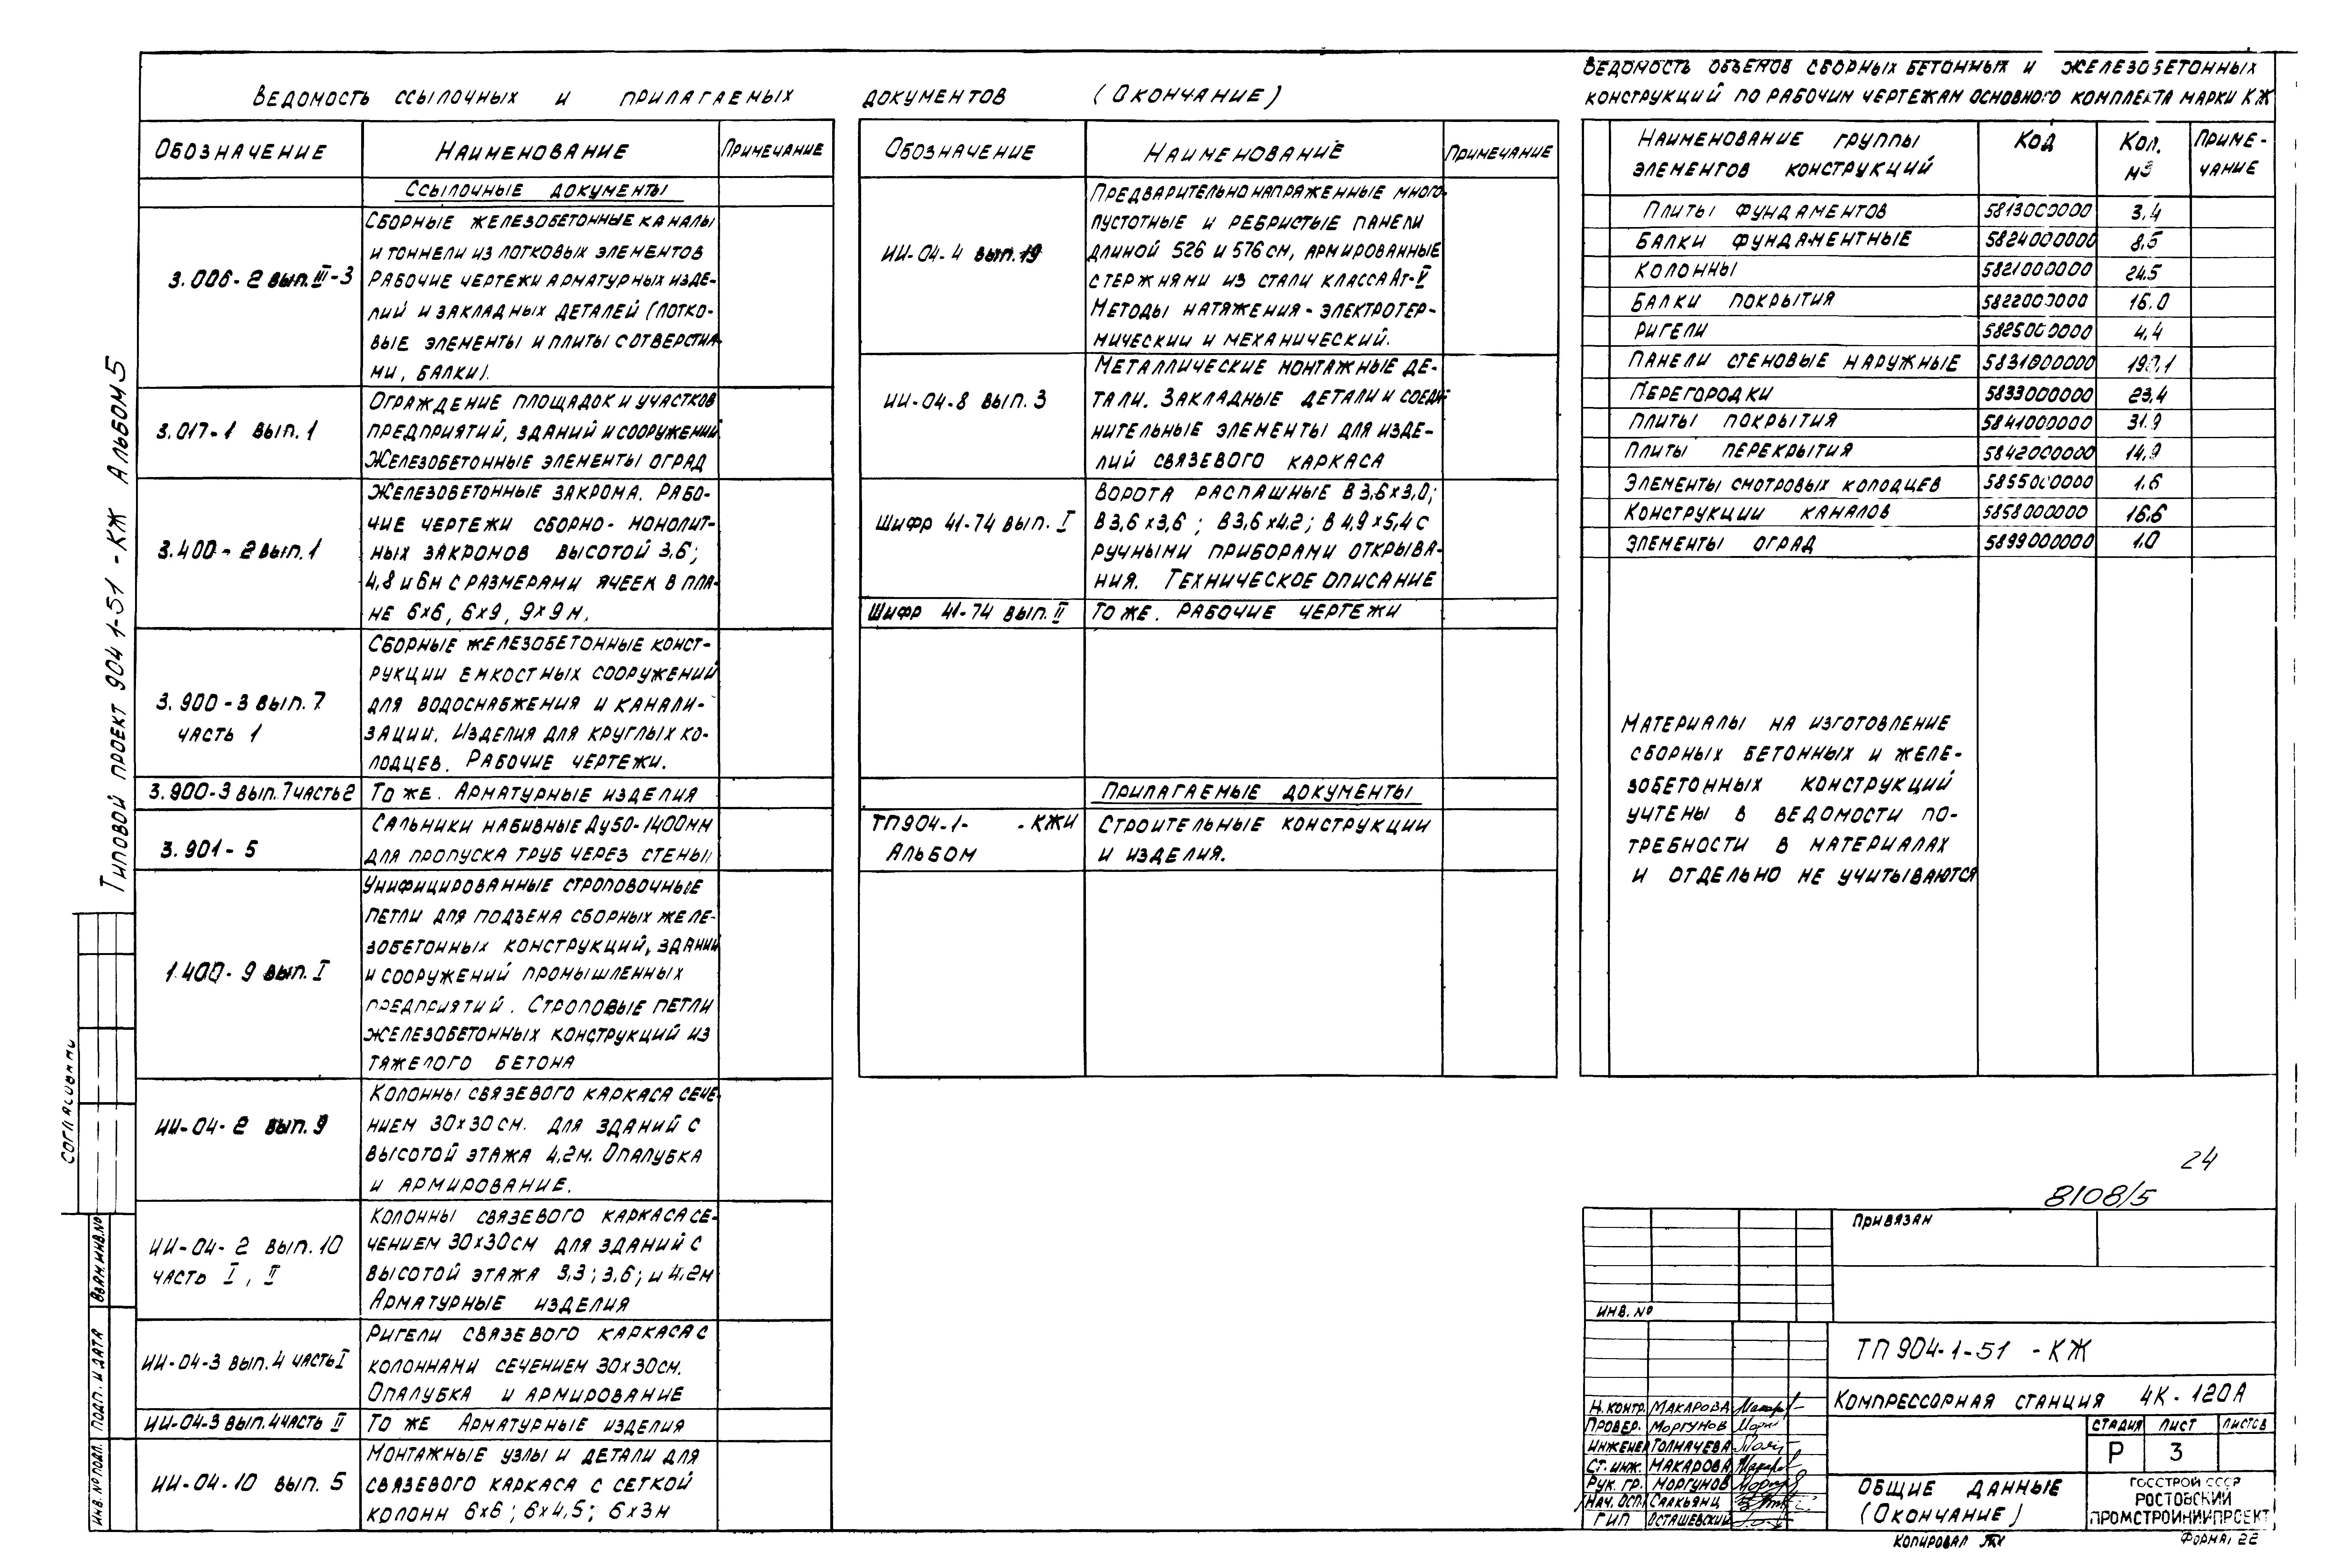 Ведомость ссылочных и прилагаемых документов (Окончание)
Обозначение Наименование Примечание
Ссылочные документы
3.006-2 вып.III-3
Сборные железобетонные каналы
и тоннели из лотковых элементов
Рабочие чертежи арматурных изде-
лий и закладных деталей (лотко-
вые элементы и плиты с отверстия-
ми, балки).
3.017-1 вып.1
Ограждение площадок и участков
предприятий, зданий и сооружений
Железобетонные элементы оград
3.400-2 вып.1
Железобетонные закрома. Рабо-
чие чертежи сборно-монолит-
ных закромов высотой 3,6;
4,8 и 6м с размерами ячеек в пла-
не 6х6, 6х9, 9х9 м.
3.900-3 вып.7
часть 1
Сборные железобетонные конст-
рукции емкостных сооружений
для водоснабжения и канали-
зации. Изделия для круглых ко-
лодцев. Рабочие чертежи.
3.900-3 вып.7 часть 2 То же. Арматурные изделия
3.901-5
Сальники набивные Ду50-1400мм
для пропуска труб через стены
1.400-9 вып.I
Унифицированные строповочные
петли для подъема сборных желе-
зобетонных конструкций, зданий
и сооружений промышленных
предприятий. Строповые петли
железобетонных конструкций из
тяжелого бетона
ИИ-04-2 вып.9
Колонны связевого каркаса сече-
нием 30х30см. для зданий с
высотой этажа 4,2м. Опалубка
и армирование.
ИИ-04-2 вып.10
часть I, II
Колонны связевого каркаса се-
чением 30х30см для зданий с
высотой этажа 3,3; 3,6; и 4,2м
Арматурные изделия
ИИ-04-3 вып.4 часть I
Ригели связевого каркаса с
колоннами сечением 30х30см.
Опалубка и армирование
ИИ-04-3 вып.4 часть II То же Арматурные изделия
ИИ-04-10 вып. 5
Монтажные узлы и детали для
связевого каркаса с сеткой
колонн 6х6; 6х4,5; 6х3м
Обозначение Наименование Примечание
ИИ-04-4 вып.19
Предварительно напряженные много-
пустотные и ребристые панели
длиной 526 и 576 см, армированные
стержнями из стали класса Ат-V
Методы натяжения - электротер-
мический и механический.
ИИ-04-8 вып.3
Металлические монтажные де-
тали. Закладные детали и соеди-
нительные элементы для изде-
лий связевого каркаса
Шифр 41-74 вып. I
Ворота распашные В 3,6х3,0;
В 3,6х3,6; В 3,6х4,2; В 4,9х5,4 с
ручными приборами открыва-
ния. Техническое описание
Шифр 41-74 вып. II То же. Рабочие чертежи
Прилагаемые документы
ТП 904-1- -КЖИ
Альбом
Строительные конструкции
и изделия.
Ведомость объемов сборных бетонных и железобетонных
конструкций по рабочим чертежам основного комплекта марки КЖ
Наименование группы
элементов конструкций
Код
Кол.
м3
Приме-
чание
Плиты фундаментов 5813000000 3,4
Балки фундаментные 5824000000 8,5
Колонны 5821000000 24,5
Балки покрытия 5822000000 16.0
Ригели 5825000000 4,4
Панели стеновые наружные 5831000000
Перегородки 5833000000 23,4
Плиты покрытия 5841000000 31.9
Плиты перекрытия 5842000000 14,9
Элементы смотровых колодцев 5855000000 1.6
Конструкции каналов 5858000000 16.6
Элементы оград 5899000000 1.0
Материалы на изготовление
сборных бетонных и желе-
зобетонных конструкций
учтены в ведомости по-
требности в материалах
и отдельно не учитываются
Типовой проект 904 1-51 -КЖ Альбом 5
Согласовано
Взам.инв.№
Подп. и дата
Инв.№ подл.
24
8108/5
Привязан
Инв. №
ТП 904-1-51 -КЖ
Компрессорная станция 4К-120А
Н.контр. Макарова
Провер. Моргунов
Инженер Толмачева
Ст. инж. Макарова
Рук. гр. Моргунов
Нач. ОСП. Саакьянц
ГИП Осташевский
Стадия Лист Листов
Р 3
Общие данные
(Окончание)
Госстрой СССР
Ростовский
Промстройниипроект
Копировал
Формат 22